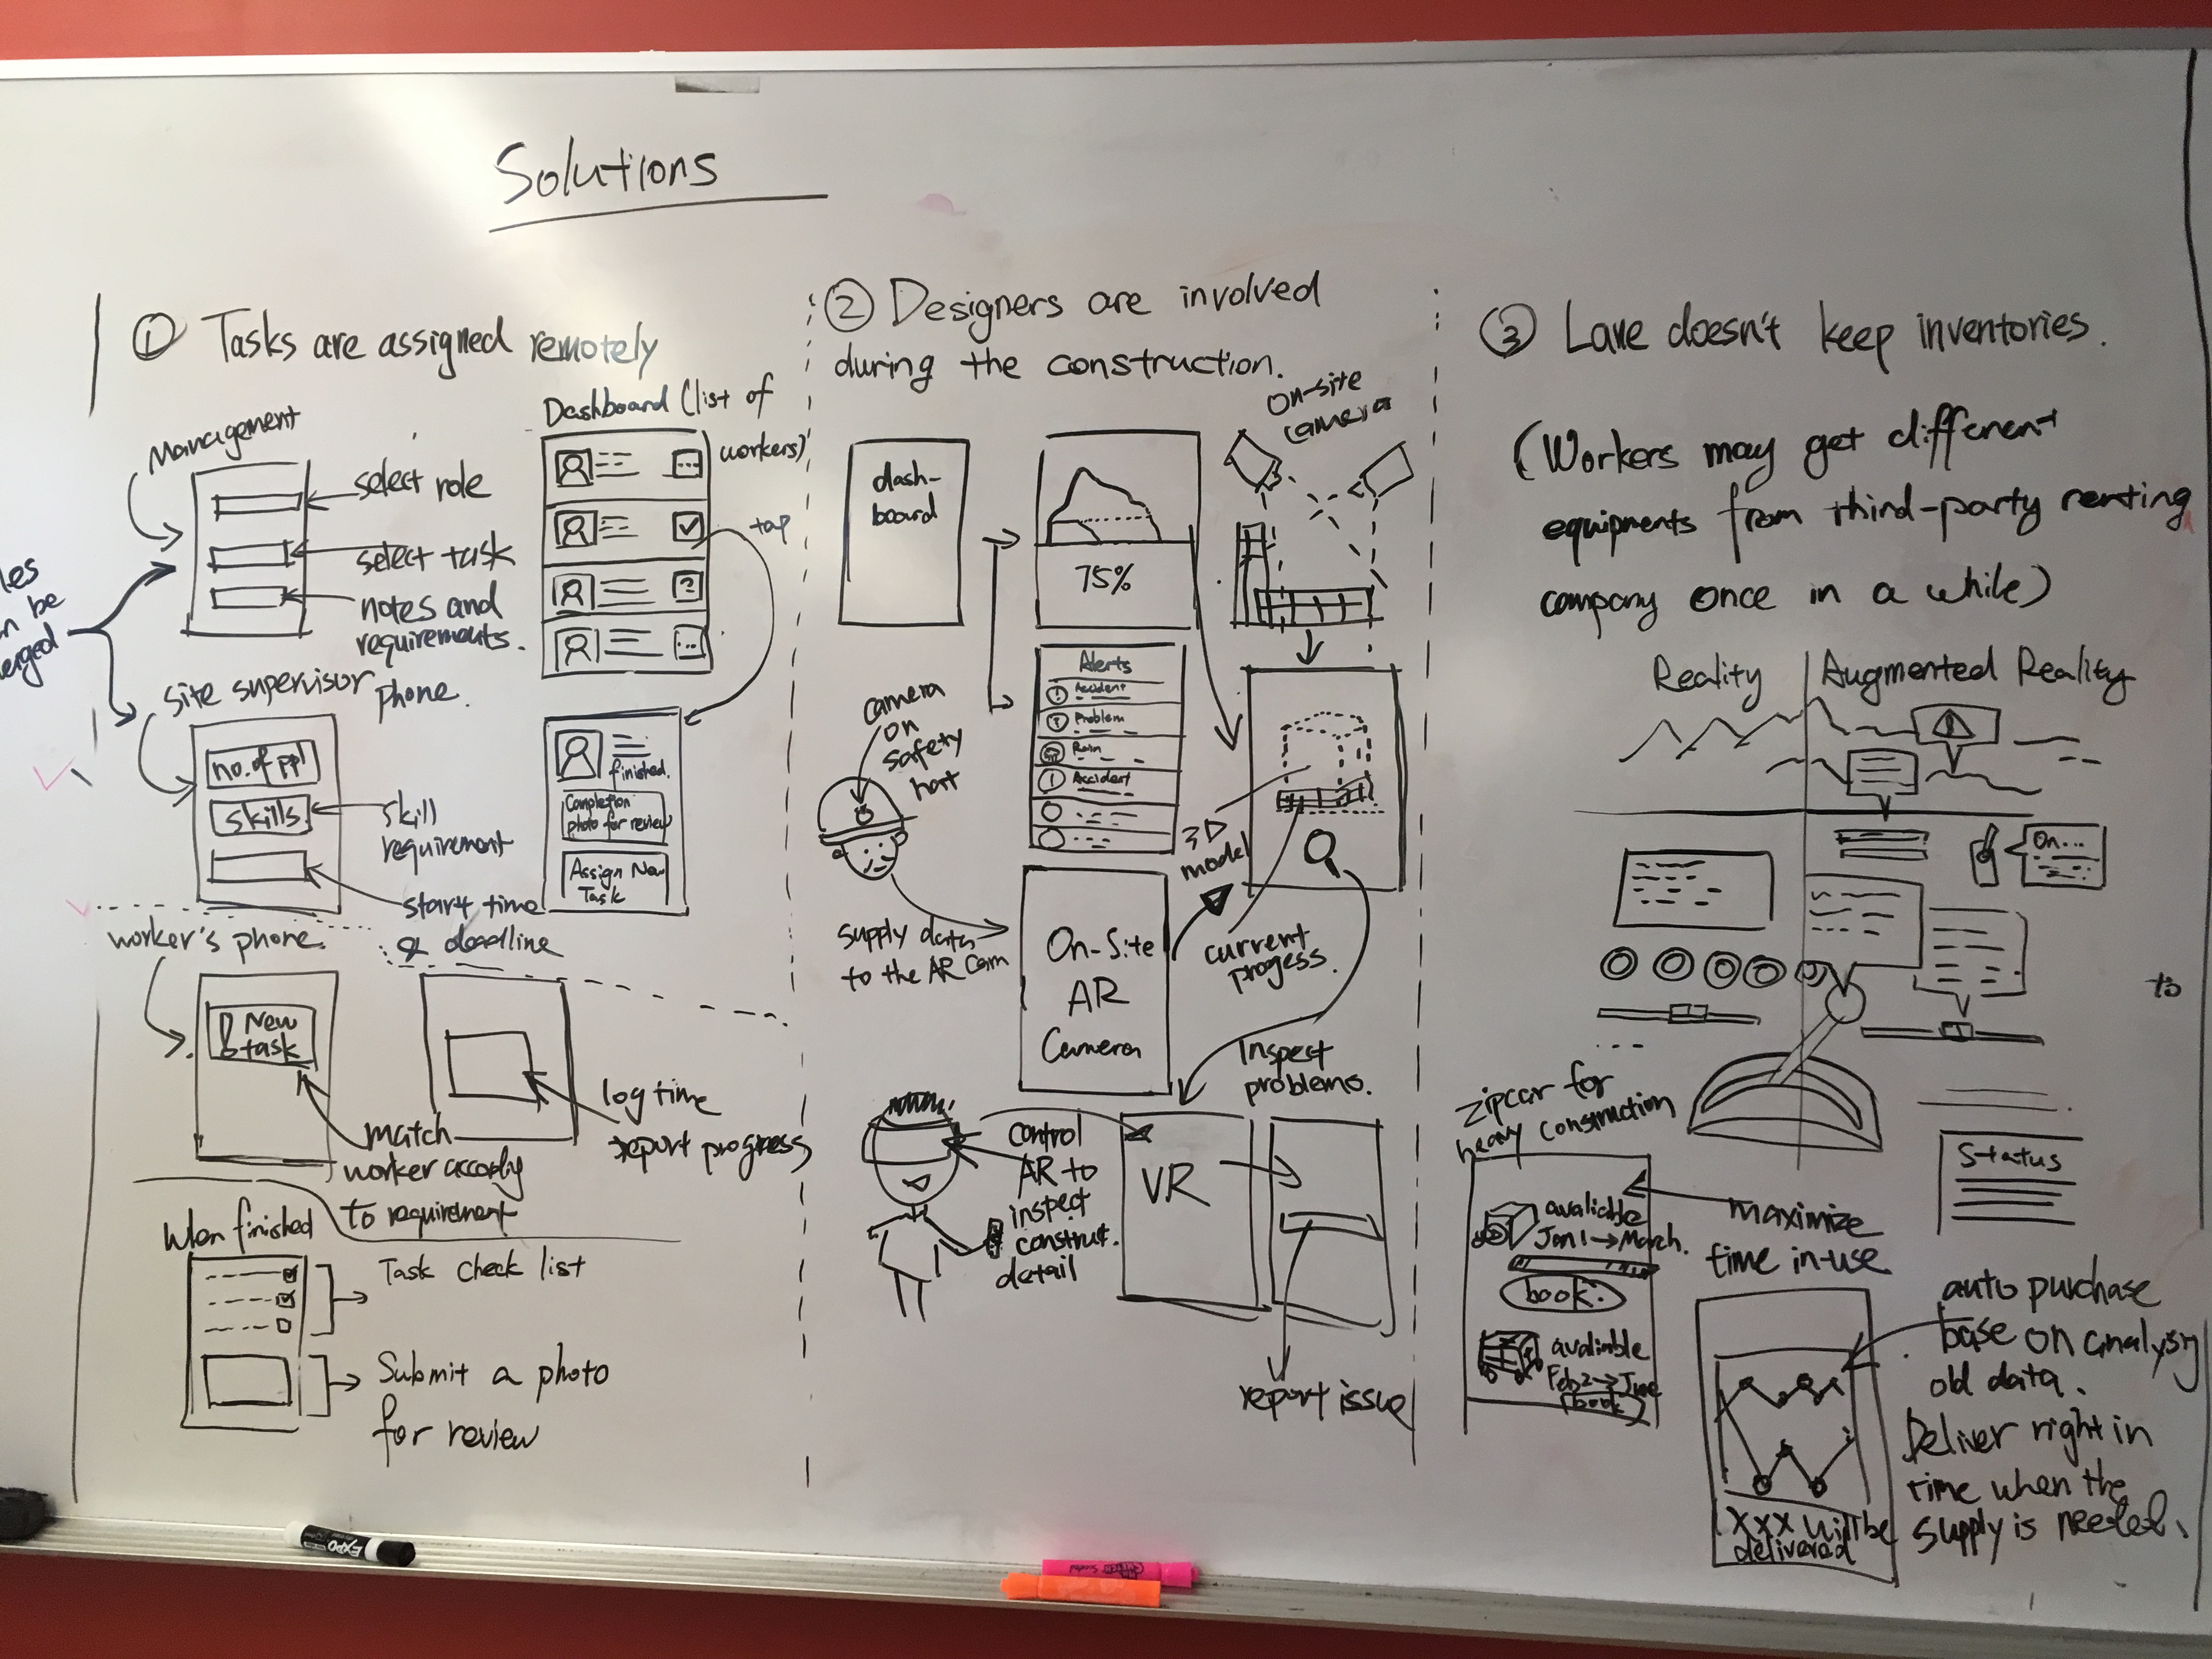 Solutions
① Tasks are assigned remotely
Management
select role
select task
notes and
requirements.
Dashboard (list of
workers)
tap
les
n be
erged
site supervisor
phone.
no. of ppl
skills.
skill
requirement
start time
& deadline
finished.
Completion
photo for review
Assign New
Task
worker's phone.
! New
task
match
worker accordly
to requirement
log time
report progress
When finished
Task check list
Submit a photo
for review
② Designers are involved
during the construction.
On-site
camera
dash-
board
75%
Alerts
! Accident
? Problem
Rain
! Accident
camera
on
safety
hat
supply data
to the AR Cam
On-Site
AR
Camera
3D
model
current
progess.
Inspect
problems.
control
AR to
inspect
construct.
detail
VR
report issue
③ Lane doesn't keep inventories.
(Workers may get different
equipments from third-party renting
company once in a while)
Reality
Augmented Reality
On...
to
Status
zipcar for
heavy construction
avaliable
Jan 1 → March.
book.
avaliable
Feb 2 → June
book
maximize
time in-use
auto purchase
base on analysing
old data.
Deliver right in
time when the
supply is needed.
XXX will be
delivered
EXPO